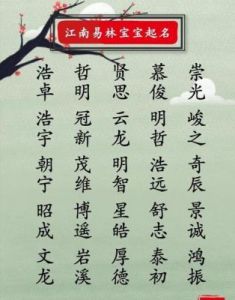 江南易林宝宝起名
崇光 峻之 奇辰 景诚 鸿振
慕俊 明哲 浩远 舒志 泰初
贤思 云龙 明智 星皓 厚德
哲明 冠新 茂维 博遥 岩溪
浩卓 浩宇 朝宁 昭成 文龙